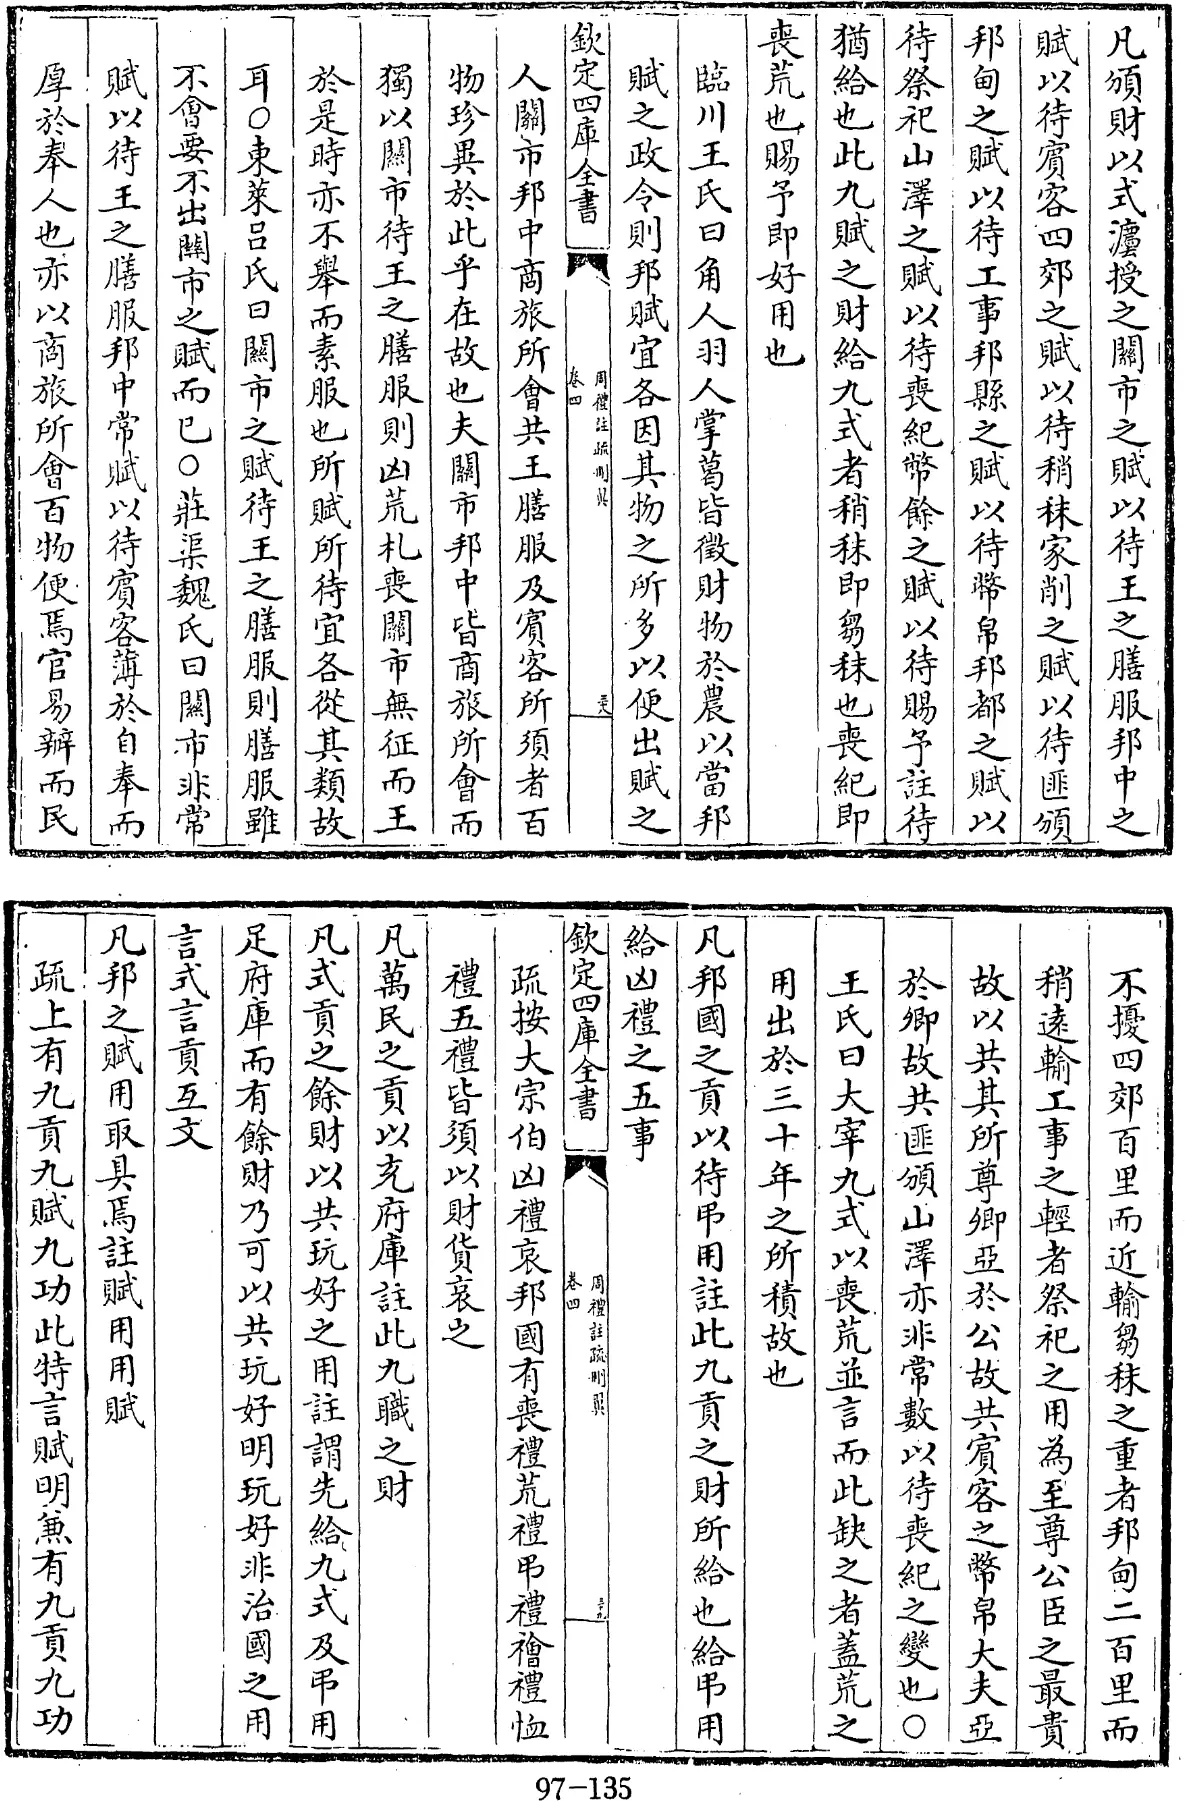 凡頒財以式灋授之關市之賦以待王之膳服邦中之
賦以待賓客四郊之賦以待稍秣家削之賦以待匪頒
邦甸之賦以待工事邦縣之賦以待幣帛邦都之賦以
待祭祀山澤之賦以待喪紀幣餘之賦以待賜予註待
猶給也此九賦之財給九式者稍秣即芻秣也喪紀即
喪荒也賜予即好用也
臨川王氏曰角人羽人掌葛皆徵財物於農以當邦
賦之政令則邦賦宜各因其物之所多以便出賦之
欽定四庫全書
周禮註疏刪翼
卷四
三十八
人關市邦中商旅所會共王膳服及賓客所須者百
物珍異於此乎在故也夫關市邦中皆商旅所會而
獨以關市待王之膳服則凶荒札喪關市無征而王
於是時亦不舉而素服也所賦所待宜各從其類故
耳○東萊呂氏曰關市之賦待王之膳服則膳服雖
不會要不出關市之賦而已○莊渠魏氏曰關市非常
賦以待王之膳服邦中常賦以待賓客薄於自奉而
厚於奉人也亦以商旅所會百物便焉官易辨而民
不擾四郊百里而近輸芻秣之重者邦甸二百里而
稍遠輸工事之輕者祭祀之用為至尊公臣之最貴
故以共其所尊卿亞於公故共賓客之幣帛大夫亞
於卿故共匪頒山澤亦非常數以待喪紀之變也○
王氏曰大宰九式以喪荒並言而此缺之者蓋荒之
用出於三十年之所積故也
凡邦國之貢以待弔用註此九貢之財所給也給弔用
給凶禮之五事
欽定四庫全書
周禮註疏刪翼
卷四
三十九
疏按大宗伯凶禮哀邦國有喪禮荒禮弔禮禬禮恤
禮五禮皆須以財貨哀之
凡萬民之貢以充府庫註此九職之財
凡式貢之餘財以共玩好之用註謂先給九式及弔用
足府庫而有餘財乃可以共玩好明玩好非治國之用
言式言貢互文
凡邦之賦用取具焉註賦用用賦
疏上有九貢九賦九功此特言賦明兼有九貢九功
97-135